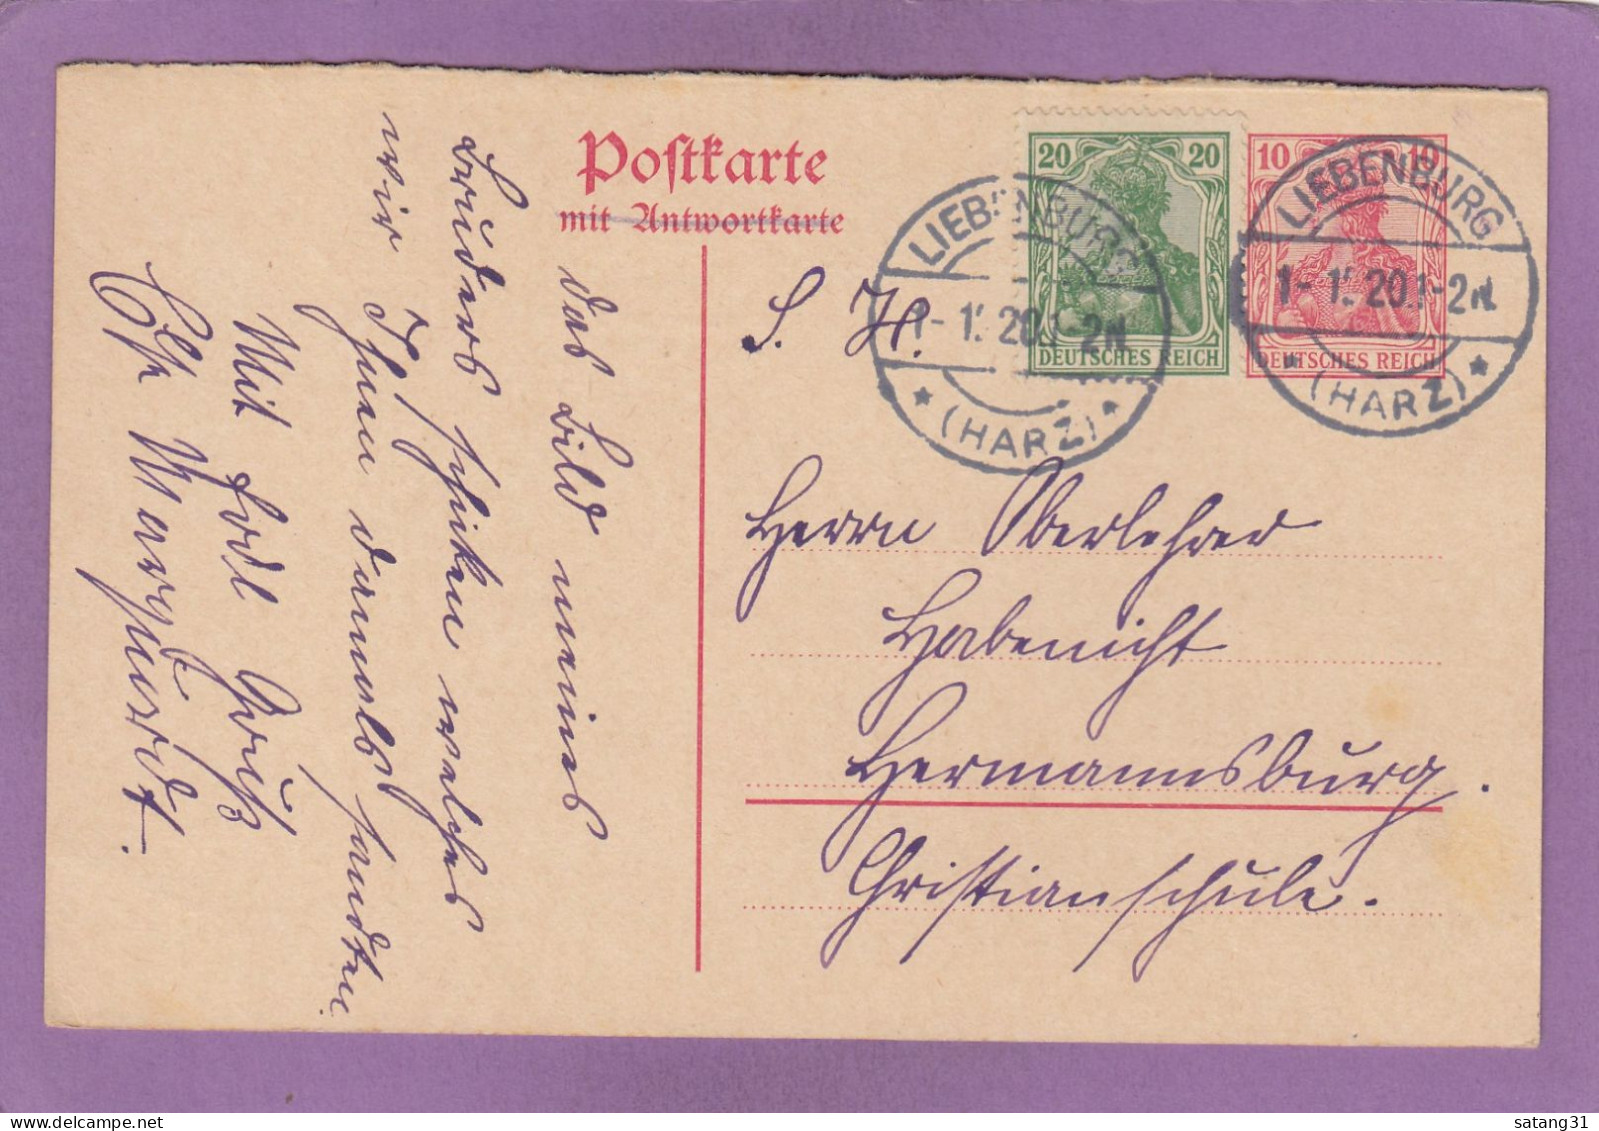 Postkarte
mit Antwortkarte
20 20
DEUTSCHES REICH
10 10
DEUTSCHES REICH
LIEBENBURG
1-1.20.1-2N.
* (HARZ) *
LIEBENBURG
1-1.20.1-2N.
(HARZ) *
S. H.
Herrn Oberlehrer
Habenicht
Hermannsburg.
Christianschule.
das Bild meines
Bruders schicken welches
wir Ihnen damals sandten
Mit frdl Gruß
Chr Marquardt.
satang31